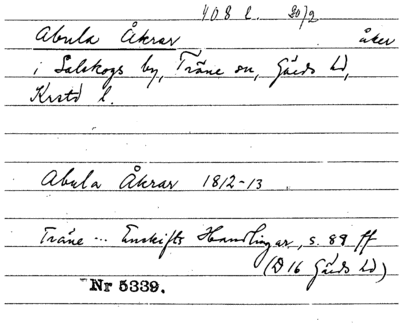 408 l. 20/2
Abula Åkrar åker
i Salskogs by, Träne sn, Gärds hd,
Krstd l.
Abula Åkrar 1812-13
Träne ... Enskifts Handlingar, s. 89 ff
(D 16 Gärds hd)
Nr 5339.